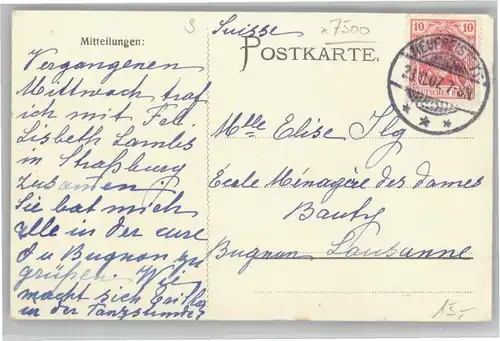 S
Suisse
*7500
Mitteilungen:
POSTKARTE.
10 10
Vergangenen
Mittwoch traf
ich mit Frl.
Lisbeth Lambs
in Straßburg
zusamen.
Sie bat mich
alle in der cure
du Bugnon zu
grüßen. Wie
macht sich
in der Tanzstunde
Mlle Elise Ilg
École Ménagère des dames
Bugnon Lausanne